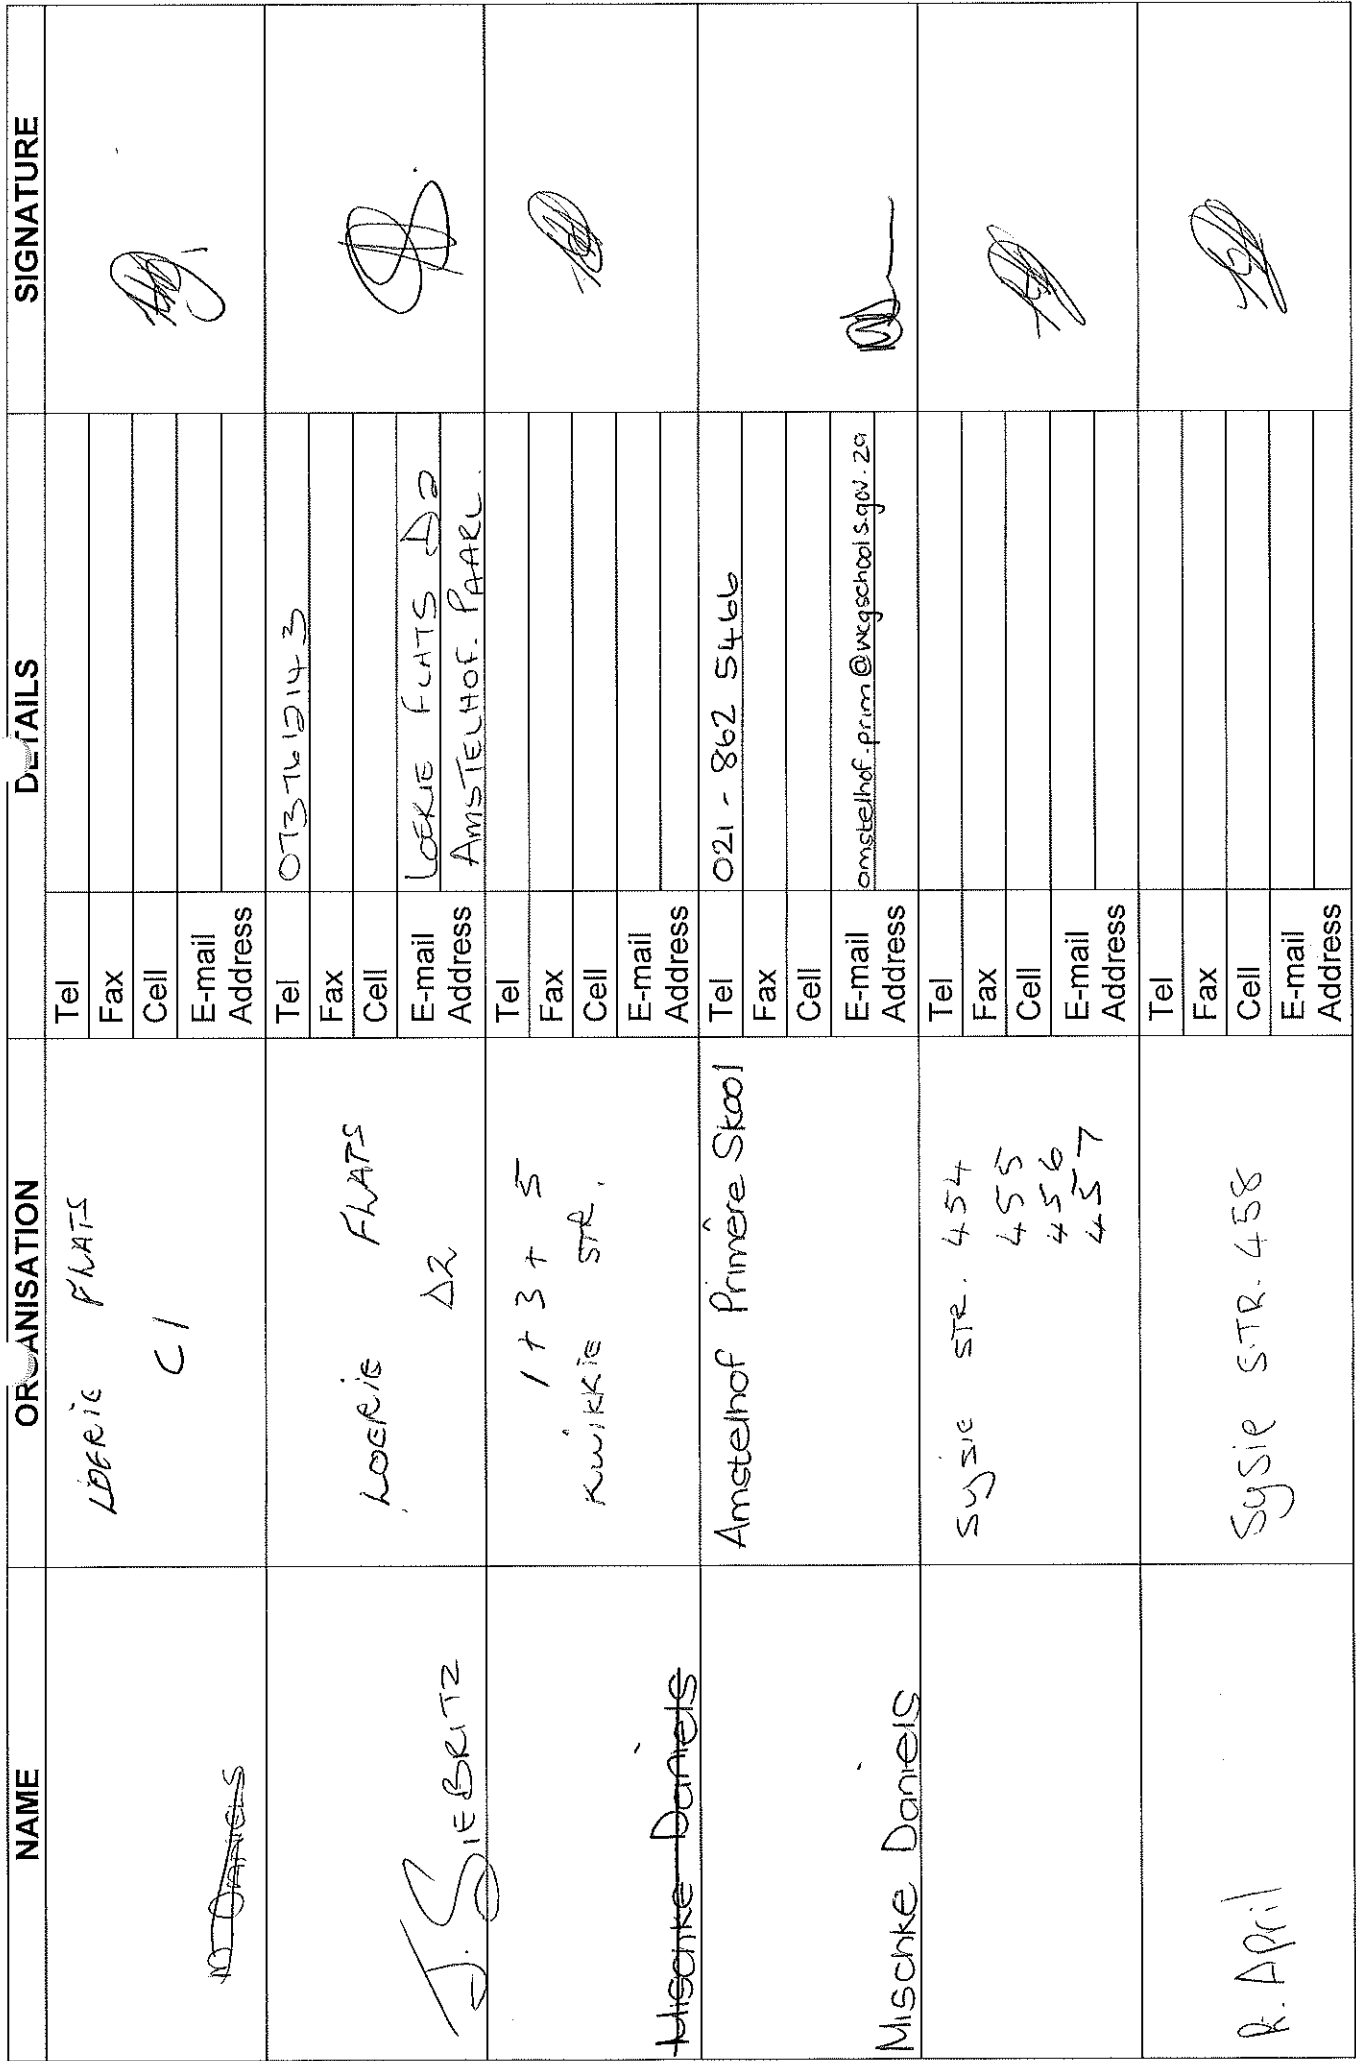 NAME ORGANISATION DETAILS SIGNATURE
M DANIELS
LOERIE FLATS
C1
Tel
Fax
Cell
E-mail
Address
J. SIEBRITZ
LOERIE FLATS
D2
Tel 0737612143
Fax
Cell
E-mail LOERIE FLATS D2
Address AMSTELHOF. PAARL.
Mischke Daniels
1 + 3 + 5
KWIKKIE STR.
Tel
Fax
Cell
E-mail
Address
Mischke Daniels
Amstelhof Primêre Skool
Tel 021 - 862 5466
Fax
Cell
E-mail amstelhof.prim@wcgschools.gov.za
Address
Sysie STR. 454
455
456
457
Tel
Fax
Cell
E-mail
Address
R. April
Sysie STR. 458
Tel
Fax
Cell
E-mail
Address